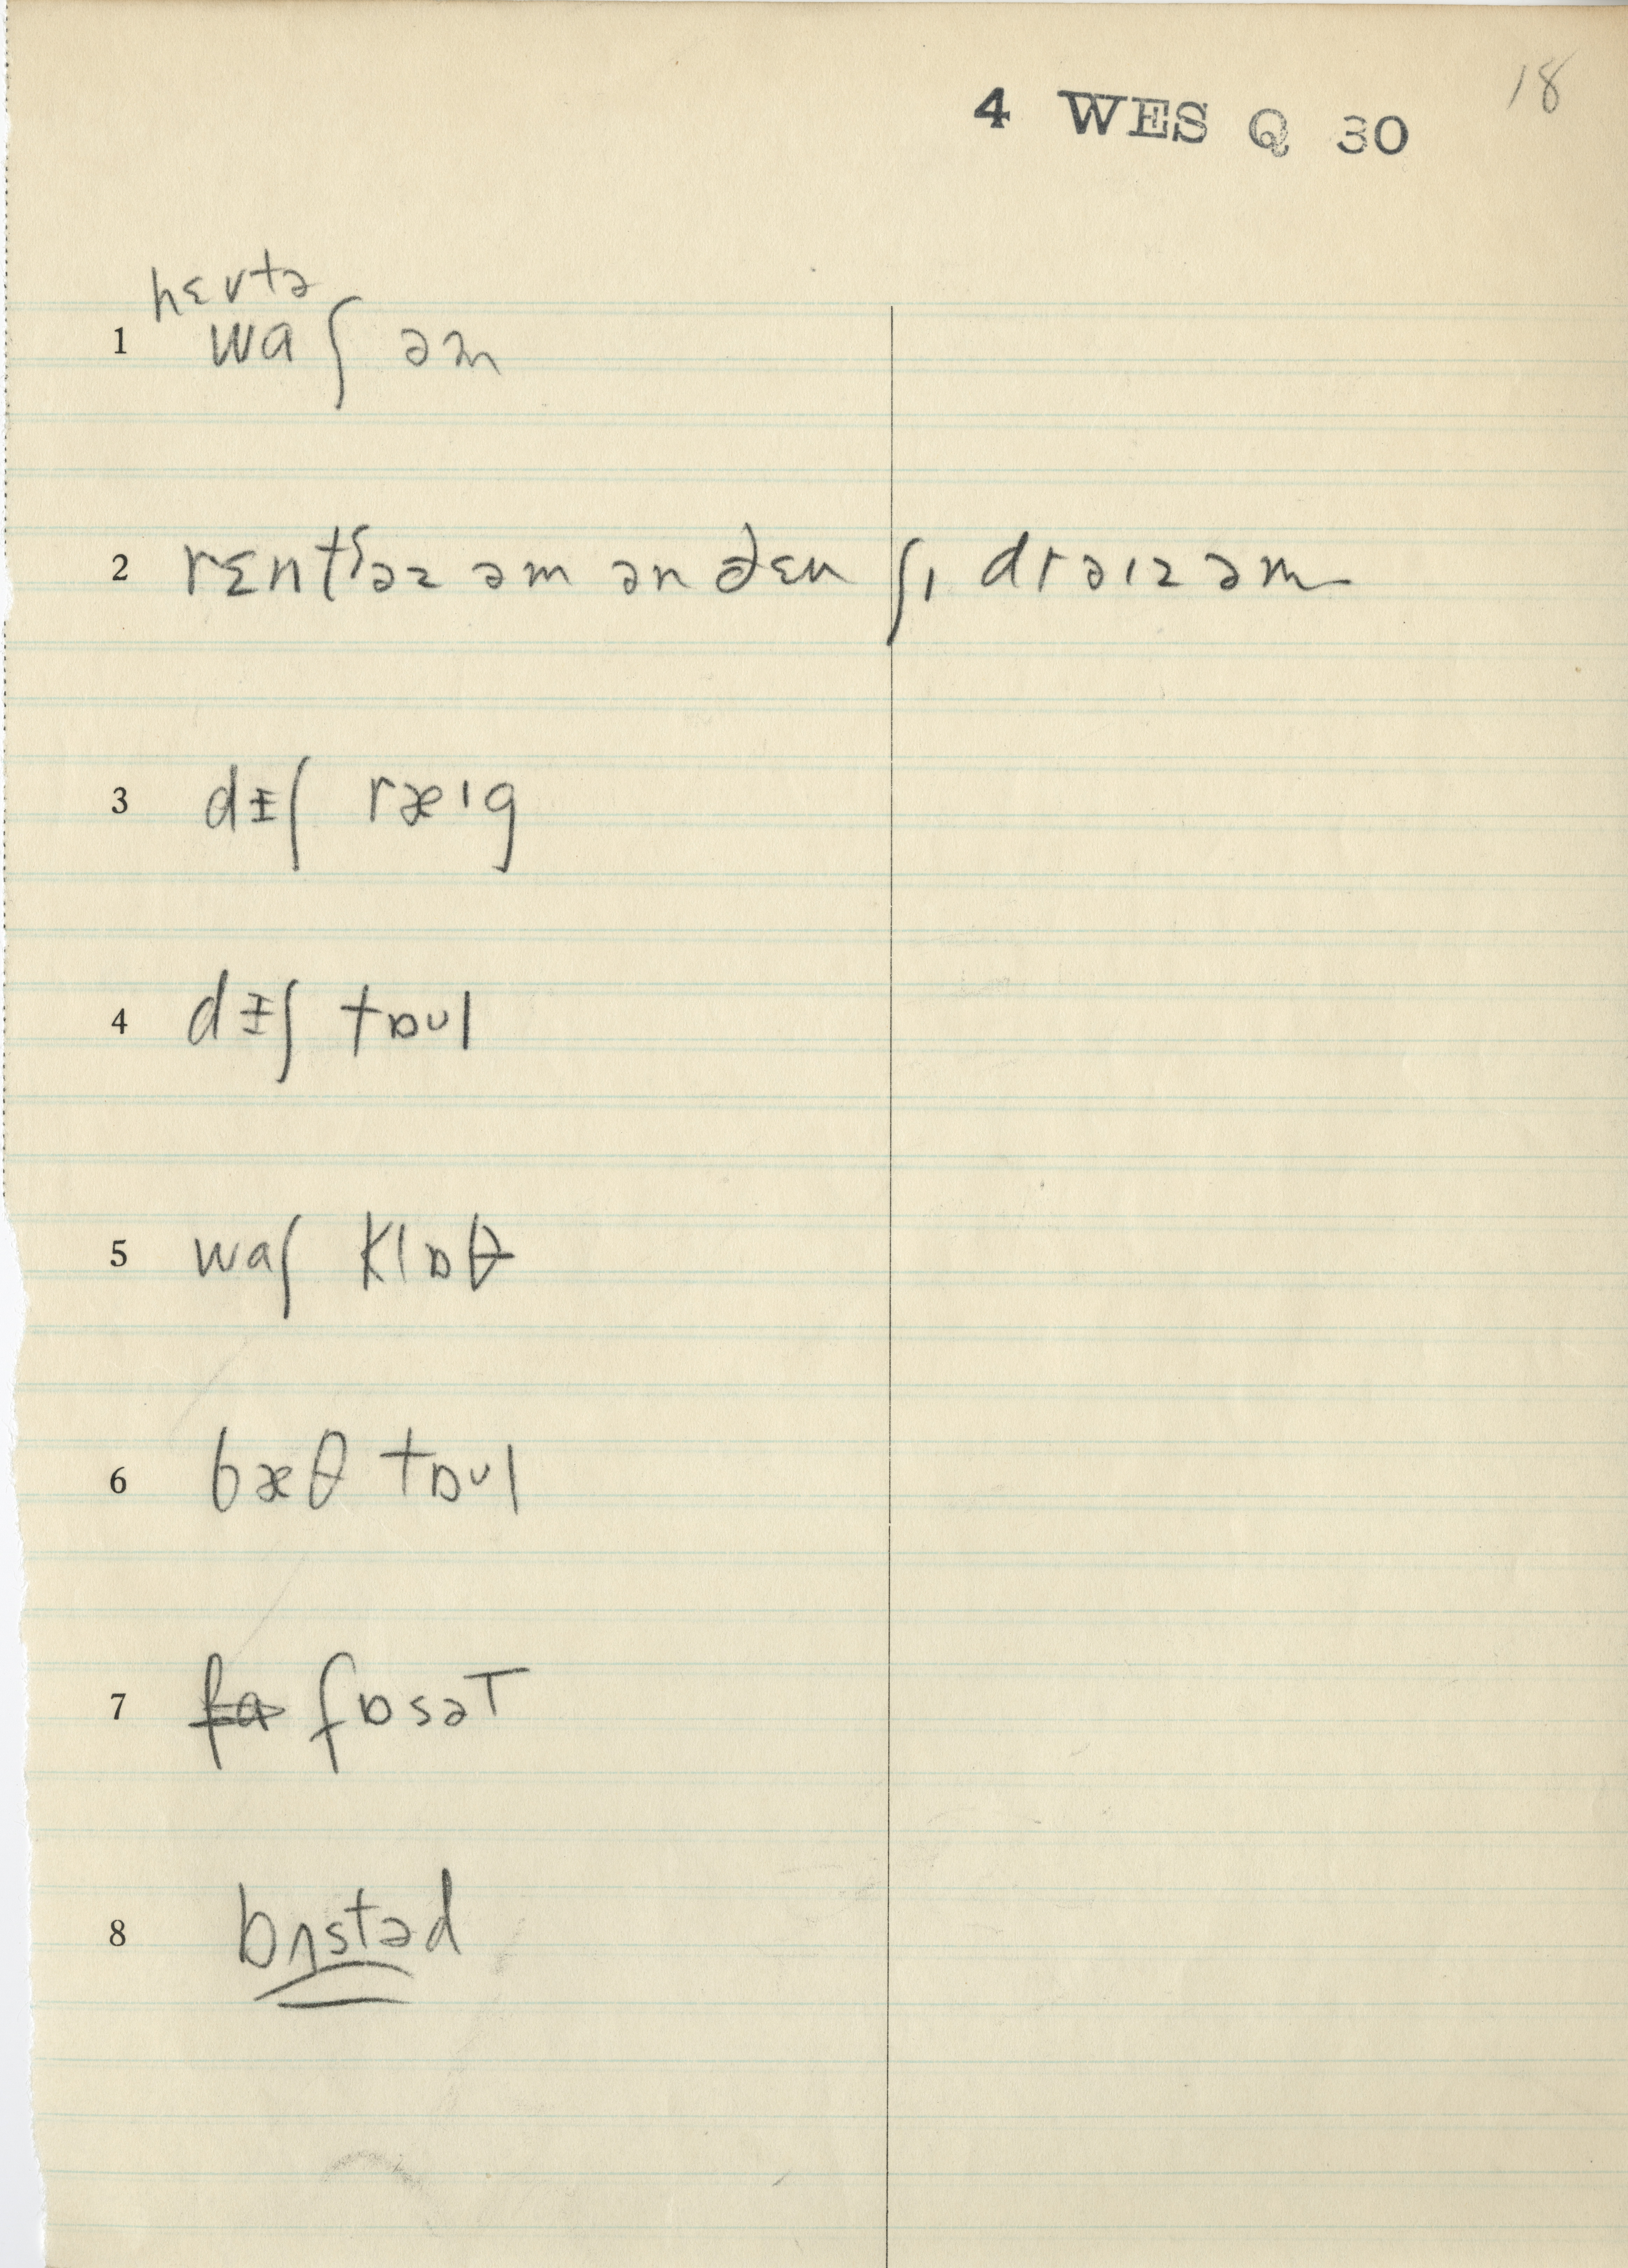 18
4 WES Q 30
hɛvtə
1 waʃ əm
2 rɛntʃəz əm ən ðɛn ʃɪ drəɪz əm
3 dɪʃ ræɪg
4 dɪʃ tɒʊl
5 waʃ klɒθ
6 bæθ tɒʊl
7 fa fɒsəT
8 bʌstəd